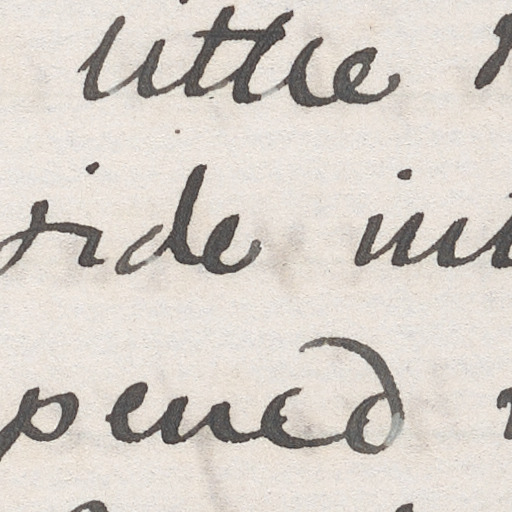 little
side int
pened